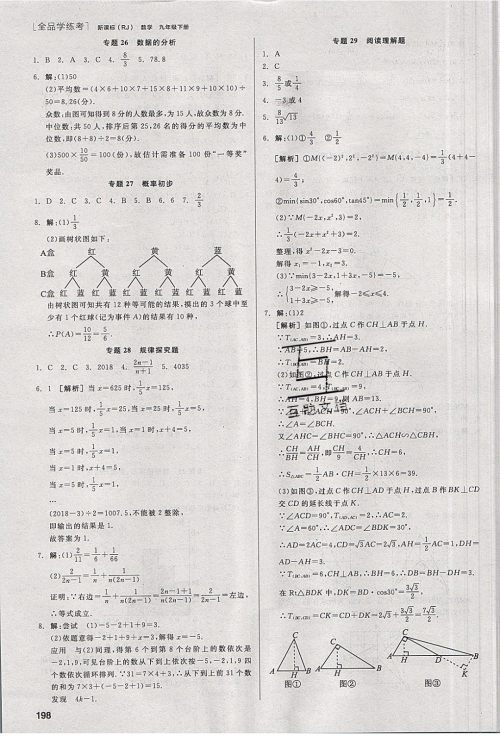 [全品学练考] 新课标(RJ) 数学 九年级下册
专题26 数据的分析
1. B 2. A 3. C 4. 8/5 5. 78.8
6. 解:(1)50
(2)平均数=(4×6+10×7+15×8+11×9+10×10)÷
50=8.26(分).
众数:由图可知得到8分的人数最多,为15人,故众数为8分.
中位数:共50人,排序后第25,26名的得分的平均数为中
位数,即(8+8)÷2=8(分).
(3)500×10/50=100(份),故估计需准备100份“一等奖”
奖品.
专题27 概率初步
1. B 2. D 3. C 4. B 5. B 6. 7. 2/3
8. 解:(1)1/3
(2)画树状图如下:
A盒 红 黄 蓝
B盒 红 黄 红 黄 红 黄
C盒 红 蓝 红 蓝 红 蓝 红 蓝 红 蓝 红 蓝
由树状图可知共有12种等可能的结果,摸出的3个球中至
少有1个红球(记为事件A)的结果有10种,
∴P(A)=10/12=5/6.
专题28 规律探究题
1. C 2. C 3. 2018 4. 2n-1/n+1 5. 4035
6. 1 [解析] 当x=625时,1/5x=125,
当x=125时,1/5x=25,当x=25时,1/5x=5,
当x=5时,1/5x=1,当x=1时,x+4=5,
当x=5时,1/5x=1,
当x=1时,x+4=5,
当x=5时,1/5x=1,
…
(2018-3)÷2=1007.5,不能被2整除,
即输出的结果是1.
故答案为1.
7. 解:(1)2/11=1/6+1/66
(2)2/2n-1=1/n+1/n(2n-1)
证明:∵右边=1/n+1/n(2n-1)=2n-1+1/n(2n-1)=2/2n-1=左边,
∴等式成立.
8. 解:尝试 (1)-5-2+1+9=3.
(2)依题意得-2+1+9+x=3,解得x=-5.
应用 与(2)同理,得第6个到第8个台阶上的数依次是
-2,1,9,可见台阶上的数从下到上依次按-5,-2,1,9四
个数依次循环排列.∵31=7×4+3,∴从下到上前31个数
的和为7×3+(-5-2+1)=15.
发现 4k-1.
198
专题29 阅读理解题
1. A
2. C
3. 8/5或1/4
4. -3或4
5. 8/13√13
6. 解:(1)①4/3 ②1/2
[解析] ①M{(-2)²,2²,-2²}=M{4,4,-4}=1/3(4+4-
4)=4/3;
②min{sin30°,cos60°,tan45°}=min{1/2,1/2,1}=1/2.
(2)∵M{-2x,x²,3}=2,
∴1/3(-2x+x²+3)=2.
整理,得x²-2x-3=0.
解得x₁=-1,x₂=3.
(3)∵min{3-2x,1+3x,-5}=-5,
∴{3-2x≥-5, 1+3x≥-5, 解得-2≤x≤4.
7. 解:(1)2
[解析] 如图①,过点C作CH⊥AB于点H.
∵T(AC,AB)=3,∴AH=3.
∵AB=5,∴BH=AB-AH=2,
∴T(BC,AB)=BH=2.
(2)如图②,过点C作CH⊥AB于点H.
∵T(AC,AB)=4,T(BC,AB)=9,
∴AH=4,BH=9,则AB=13.
∠ACH+∠BCH=90°,
∴∠A=∠BCH.
又∠AHC=∠BHC=90°,∴△ACH∽△CBH,
∴CH/BH=AH/CH,即CH/9=4/CH,∴CH=6,
∴S△ABC=1/2AB·CH=1/2×13×6=39.
(3)如图③,过点C作CH⊥AD于点H,过点B作BK⊥CD
交CD的延长线于点K.
∵∠ACD=90°,T(AD,AC)=2,∴AC=2.
∵∠A=60°,∴∠ADC=∠BDK=30°,
∴AD=2AC=4,CD=√3AC=2√3,AH=1/2AC=1,DH=
AD-AH=3.
∵T(BC,AB)=6,CH⊥AB,∴BH=6,∴DB=BH-DH=3.
在Rt△BDK中,DK=BD·cos30°=3√3/2,
∴T(BC,CD)=CK=CD+DK=2√3+3√3/2=7√3/2.
C A H B 图①
C A H B 图②
C A H D B K 图③